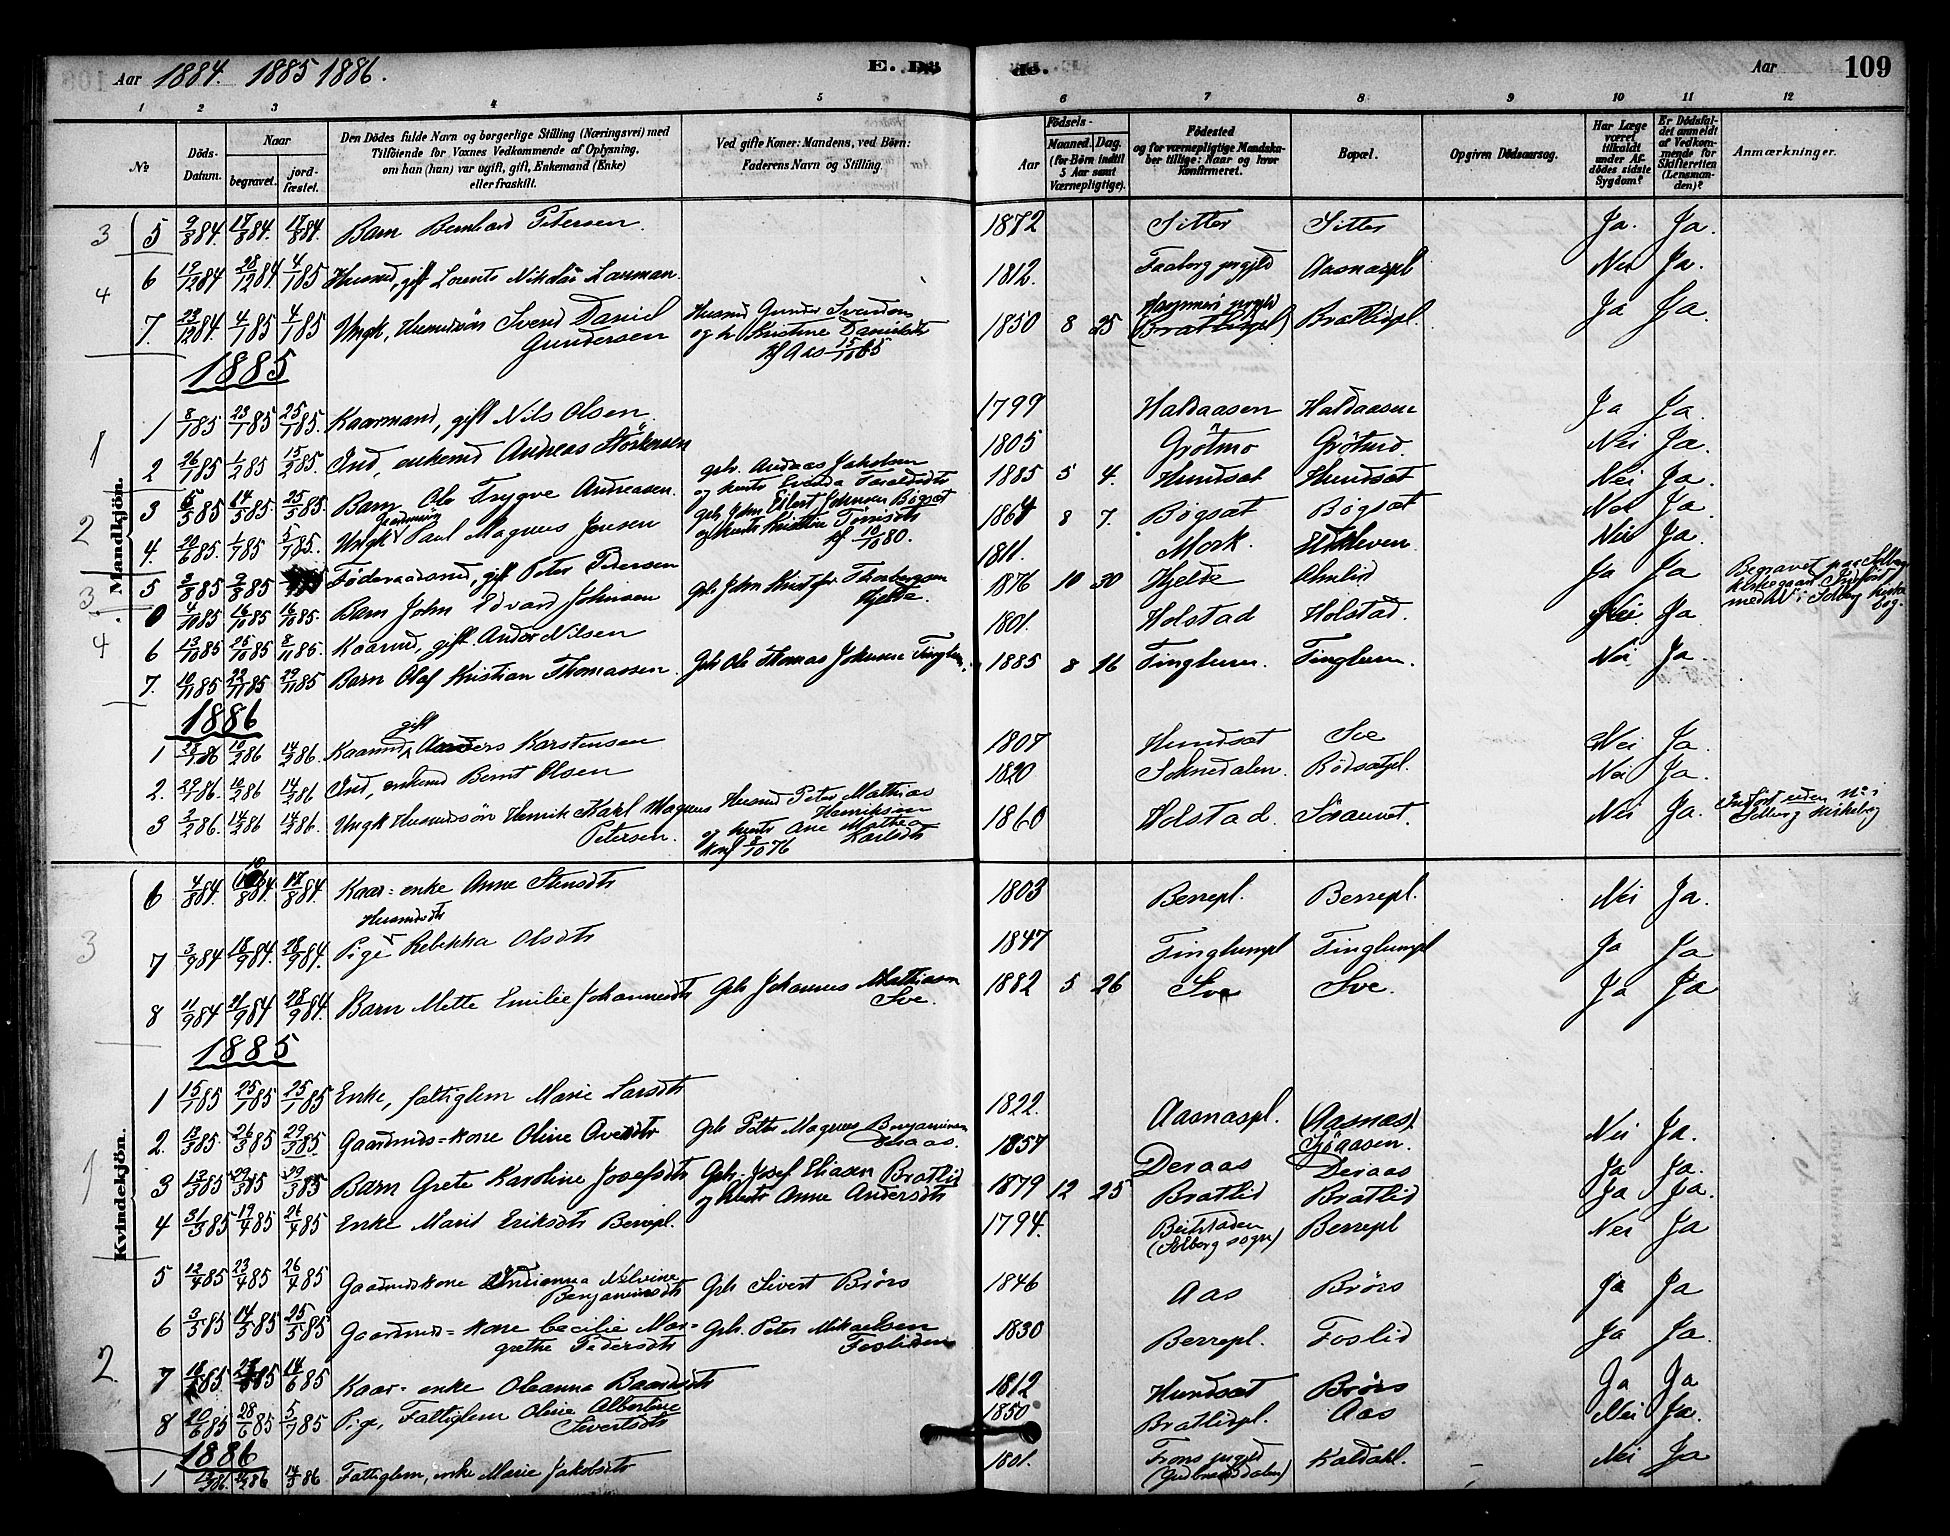 Aar 1884. 1885 1886. E. Dø de. Aar 109
1 2 3 4 5 6 7 8 9 10 11 12
No Døds-Datum. Naar begravet. jordfæstet. Den Dødes fulde Navn og borgerlige Stilling (Næringsvei) med Tilføiende for Voxnes Vedkommende af Oplysning, om han (hun) var ugift, gift, Enkemand (Enke) eller fraskilt. Ved gifte Koner: Mandens, ved Børn: Faderens Navn og Stilling. Fødsels- Aar Maaned. Dag. (for Børn indtil 5 Aar samt Værnepligtige). Fødested og for værnepligtige Mandskaber tillige: Naar og hvor konfirmeret. Bopæl. Opgiven Dødsaarsag. Har Læge været tilkaldt under Afdødes sidste Sygdom? Er Dødsfaldet anmeldt af Vedkommende for Skifteretten (Lensmanden)? Anmærkninger.
Mandkjön.
3 5 9/8 84. 17/8 84. 17/8 84. Barn Bernhard Petersen. 1872 Sitter Sitter Ja. Ja.
4 6 19/12 84 28/12 84 4/1 85 Husmd, gift Lorents Nikolai Larsman. 1812. Faaberg prgjld Aasnaspl Nei Ja.
7. 23/12 84. 4/1 85 4/1 85 Ungk, Husmdsön Svend Daniel Gundersen Husmd Gunder Svendsen og h. Kristine Danielsdt kf Aas 15/10 65 1850 8 25 prgjld (Bratlidpl) Bratlidpl. Ja Ja
1885
1 8/1 85 23/1 85 25/1 85. Kaarmand, gift Nils Olsen 1799 Haldaasen Haldaasen Ja Ja.
1 2 26/1 85 1/2 85 15/2 85. Ind, enkemd Andreas Störkersen 1805 Grötmo Grötmo. Nei Ja.
3 5/5 85 14/5 85. 25/5 85. Barn Ole Trygve Andreasen. gbr. Andreas Jakobsen og hust Taraldsdt 1885 5 4. Hundsat Hundsat Nei Ja.
2 4. 30/6 85. 1/7 85 5/7 85. Ungk Gaardmsön Paul Magnus Jensen gbr. John Eilert Jensen Bögsæt og hust Kristine Tönnisdt kf 10/10 80. 1864 8 7. Bögsat Bögsat Nei Ja.
5 2/8 85 9/8 85 Föderaadsmd, gift Peter Pedersen 1811. Mork. Nei Ja.
3 0 4/10 85 16/10 85 16/10 85. Barn John Edvard Johnsen Gbr John Kristofer Thorbergsen Hjelde. 1876 10 30 Hjelde Almlid Ja Ja Begravet paa Solberg Kirkegaard Indfört med No i Solberg kirkebog.
4 6 13/10 85 25/10 85 8/11 85. Kaarmd, gift Andor Nilsen 1801. Holstad Holstad. Nei Ja
7. 10/11 85 22/11 85 29/11 85 Barn Olaf Kristian Thomassen Gbr Ole Thomas Johnsen Tinglum. 1885 8 16 Tinglum. Tinglum. Nei Ja.
1886
1 10/2 86 14/2 86. Kaarmd, gift Anders Karstensen 1807 Hundsat Sve Nei Ja.
2. 29/1 86. 10/2 86 14/2 86 Ind, enkemd Bernt Olsen 1820 Soknedalen Bödsatpl. Nei Ja.
3 2/2 86. 14/2 86 14/2 86. Ungk Husmdsön Henrik Karl Magnus Petersen. Husmd Peter Mathias Henriksen og hust Ane Mathea Karlsdt Konf 8/10 76 1860 Holstad. Nei Ja. Indfört uden No i Solberg kirkebog
Kvindekjön.
6 4/8 84. 10/8 84. 17/8 84. Kaar-enke Anne Stensdt 1803 Berrepl. Berrepl. Nei Ja.
3 7 3/9 84 18/9 84. 28/9 84. Pige Husmdsdt Rebekka Olsdt 1847 Tinglumpl Tinglumpl Ja Ja
8 11/9 84 21/9 84 28/9 84. Barn Mette Emilie Johannesdt Gbr Johannes Mathiasen Sve. 1882 5 26 Sve Sve. Ja Ja
1885
1 15/1 85 25/1 85 25/1 85 Enke, fattiglem Marie Larsdt 1822. Aasnaspl. (Aasnæs) Sjöaasen. Nei Ja.
2. 13/3 85. 26/3 85 29/3 85 Gaardmds-kone Oline Ovesdt Gbr Petter Magnus Benjaminsen Deraas. 1857 Deraas Deraas Ja Ja.
1 3 13/3 85 29/3 85 29/3 85 Barn Grete Karoline Josefsdt Gbr. Josef Eliasen Bratlid og hust Anne Andersdt 1879 12 25 Bratlid Bratlid Ja Ja.
4 31/3 85 19/4 85 26/4 85 Enke Marit Eriksdt Berrepl. 1794. Beitstaden (Solberg sogn) Berrepl Nei Ja
5 12/4 85 23/4 85 26/4 85 Gaardmdskone Andrianna Nilvine Benjaminsdt Gbr Sivert Brörs 1846 Aas Brörs Ja Ja
6 3/5 85 14/5 85 25/5 85 Gaardmds-kone Cecilie Margrethe Pedersdt Gbr. Peter Mikaelsen Fosliden 1830 Berrepl. Foslid Ja Ja.
2. 7 85 85 14/6 85 Kaar-enke Oleanna Baardsdt 1812 Hundsat Brörs Ja Ja
8 20/6 85 28/6 85 5/7 85 Pige, Fattiglem Oline Albertine Sivertsdt 1850. Bratlidpl. Aas Nei Ja.
1886
1 86. 86 14/3 86 Fattiglem, enke Marie Jakobsdt 1801. Frons prgjld (Gudbrandsdalen) Kaldahl. Nei Ja